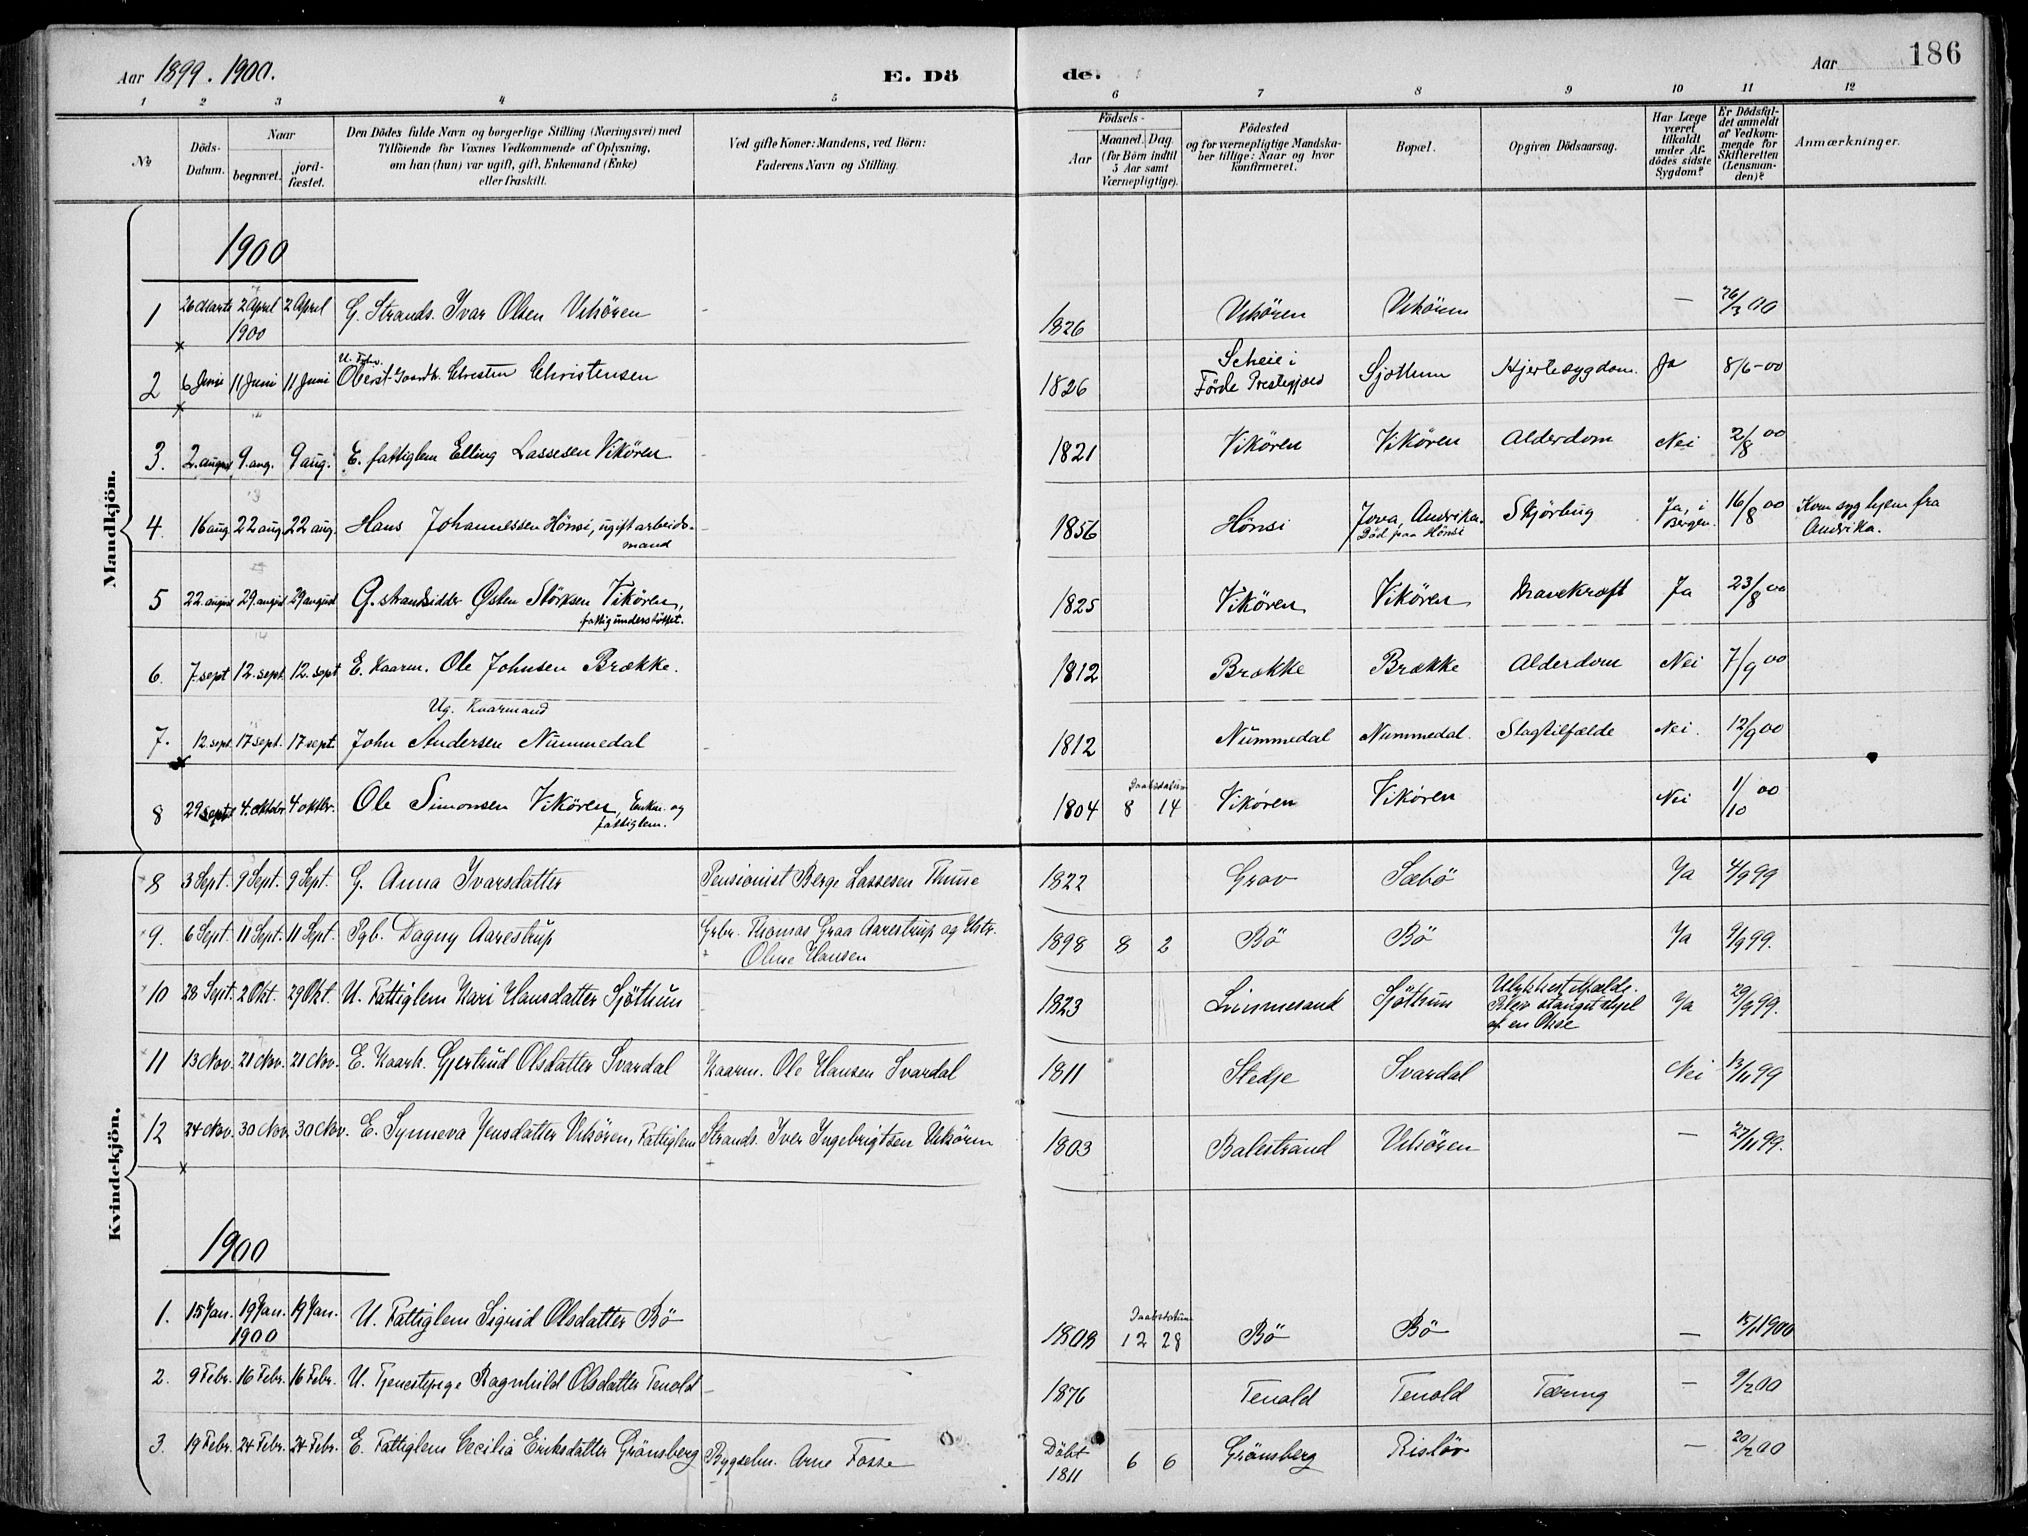 Aar 1899. 1900.
E. Dö
de.
Aar
186
1 2 3 4 5 6 7 8 9 10 11 12
No
Döds-Datum.
Naar
begravet.
jord-fæstet.
Den Dödes fulde Navn og borgerlige Stilling (Næringsvei) med
Tilföiende for Voxnes Vedkommende af Oplysning,
om han (hun) var ugift, gift, Enkemand (Enke)
eller fraskilt.
Ved gifte Koner: Mandens, ved Börn:
Faderens Navn og Stilling.
Födsels-
Aar
Maaned. Dag.
(for Börn indtil
5 Aar samt
Værnepligtige).
Födested
og for værnepligtige Mandska-
ber tillige: Naar og hvor
konfirmeret.
Bopæl.
Opgiven Dödsaarsag.
Har Læge
været
tilkaldt
under Af-
dödes sidste
Sygdom?
Er Dödsfal-
det anmeldt
af Vedkom-
mende for
Skifteretten
(Lensman-
den)?
Anmærkninger.
Mandkjön.
1900
1 26 Marts 2 April 1900 2 April G. Strands. Ivar Olsen Vikören - 1826 Vikören Vikören — 26/3 00
2 6 Juni 11 Juni 11 Juni Christensen 1826 Scheie i Förde Prestegjæld Sjöthun Hjertesygdom. Ja 8/6-00
3. 2. august 9. aug. 9 aug. E. fattiglem Elling Lassesen Vikören - 1821 Vikören Vikören Alderdom Nei 2/8 00
4. 16 aug 22 aug 22 aug. Hans Johannessen Hönsi, ugift arbeids-mand - 1856 Hönsi Jova, Amrika. Död paa Hönsi Skjörbug Ja, i Bergen. 16/8 00 Kom syg hjem fra Amrika.
5 22. august 29. august 29 august G. strandsidder Østen Störksen Vikören, fattigunderstöttet. - 1825 Vikören Vikören Mavekræft Ja 23/8 00
6. 7. sept 12. sept. 12. sept E. Kaarm. Ole Johnsen Brække. - 1812 Brække Brække Alderdom Nei 7/9 00
7. 12. sept. 17 sept. 17 sept. Ug. Kaarmand John Andersen Nummedal - 1812 Nummedal Nummedal. Slagtilfælde Nei. 12/9 00
8 29 sept 4. oktober 4 oktbr. Ole Simonsen Vikören, Enkm. og fattiglem. 1804 Daabsdatum 8 14 Vikören Vikören Nei 1/10 00
Kvindekjön.
8 3 Sept. 9 Sept. 9 Sept. G. Anna Ivarsdatter Pensionist Berge Lassesen Thune 1822 Grov Sæbö Ja 4/9 99
9. 6 Sept. 11 Sept. 11 Sept. Pgb. Dagny Aarestrup Grbr. Thomas Graa Aarestrup og Hstr. Oline Hansen 1898 8 2 Bö Bö Ja 9/9 99.
10 28 Sept. 2 Okt. 29 Okt. U. Fattiglem Kari Hansdatter Sjöthun - 1823 Sjöthun Ulykkestilfælde. Blev stanget ihjel af en Okse Ja 29/9 99.
11 13 Nov. 21 Nov. 21 Nov. E. Kaark. Gjertrud Olsdatter Svardal Kaarm. Ole Hansen Svardal 1811 Stedje Svardal Nei 13/11 99
12 24 Nov. 30 Nov. 30 Nov. E. Synneva Jensdatter Vikören, Fattiglem Strands. Iver Ingebrigtsen Vikören 1803 Balestrand Vikören — 27/11 99.
1900
1. 15 Jan. 19 Jan. 1900 19 Jan. U. Fattiglem Sigrid Olsdatter Bö 1808 Daabsdatum 12 28 Bö Bö — 15/1 1900
2. 9 Febr. 16 Febr. 16 Febr. U. Tjenestepige Ragnhild Olsdatter Tenold - 1876 Tenold Tenold Tæring — 9/2 00
3. 19 Febr. 24 Febr. 24 Febr. E. Fattiglem Cecilia Eriksdatter Grönsberg Bygselm. Arne Fosse Döbt 1811 6 6 Grönsberg Rislöv — 20/2 00